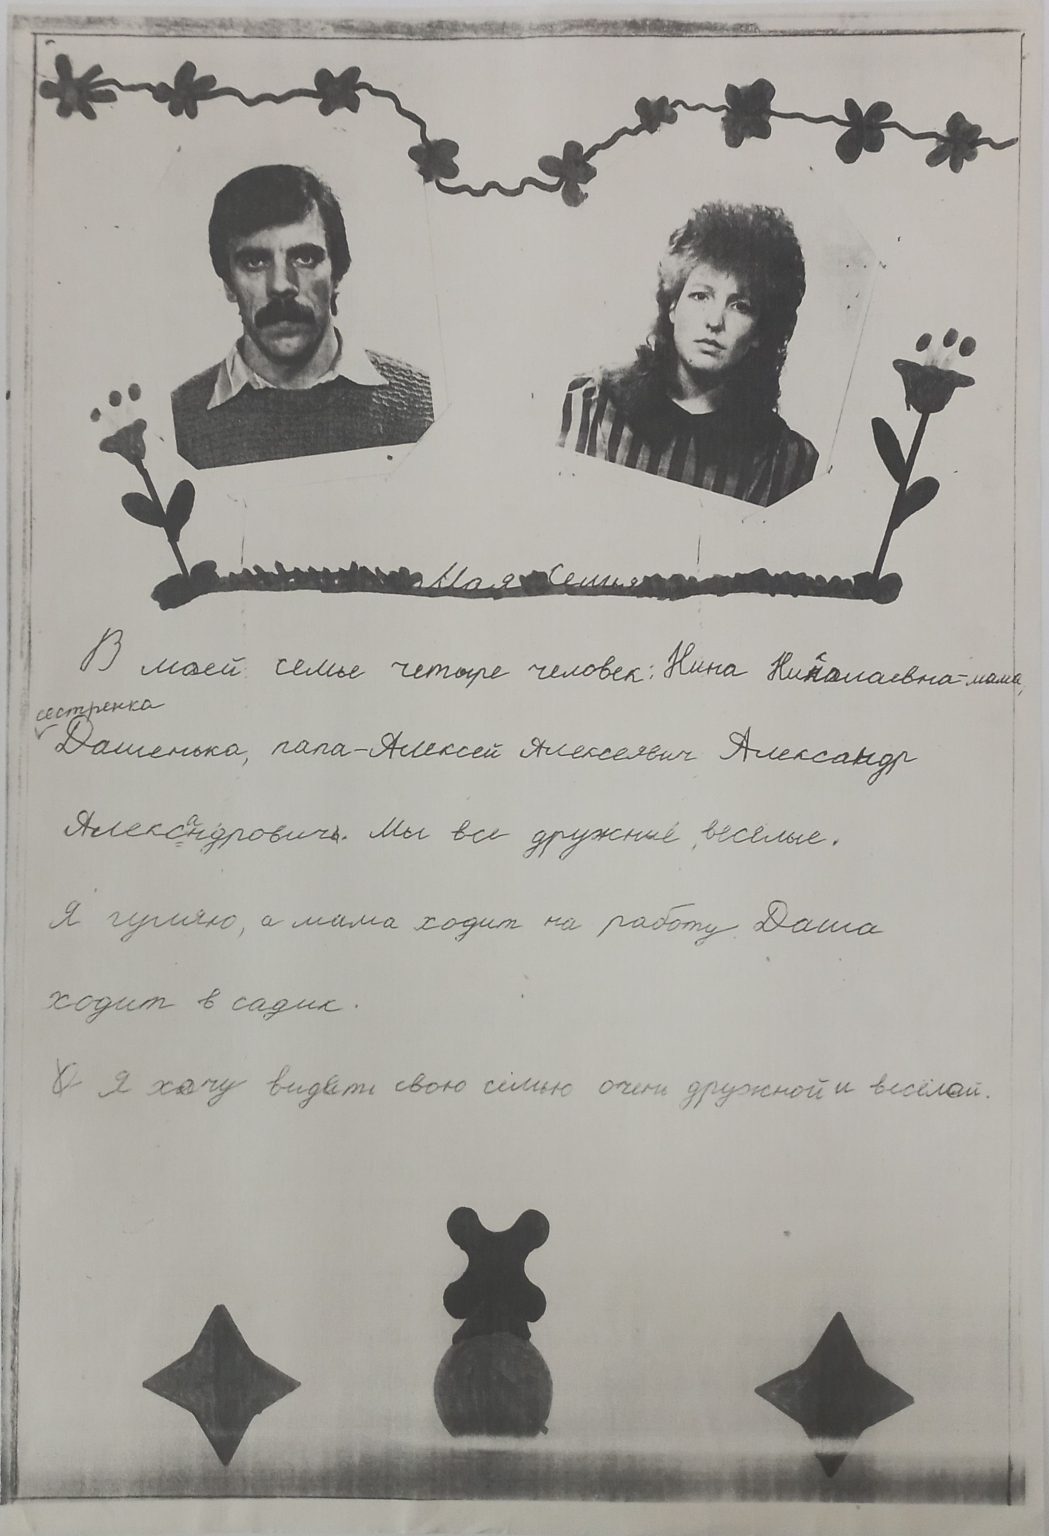 Моя Семья
В моей семье четыре человек: Нина Николаевна-мама,
сестренка
Дашенька, папа-Алексей Алексеевич Александр
Александрович. Мы все дружные, весёлые.
Я гуляю, а мама ходит на работу. Даша
ходит в садик.
Я хочу видеть свою семью очень дружной и весёлой.